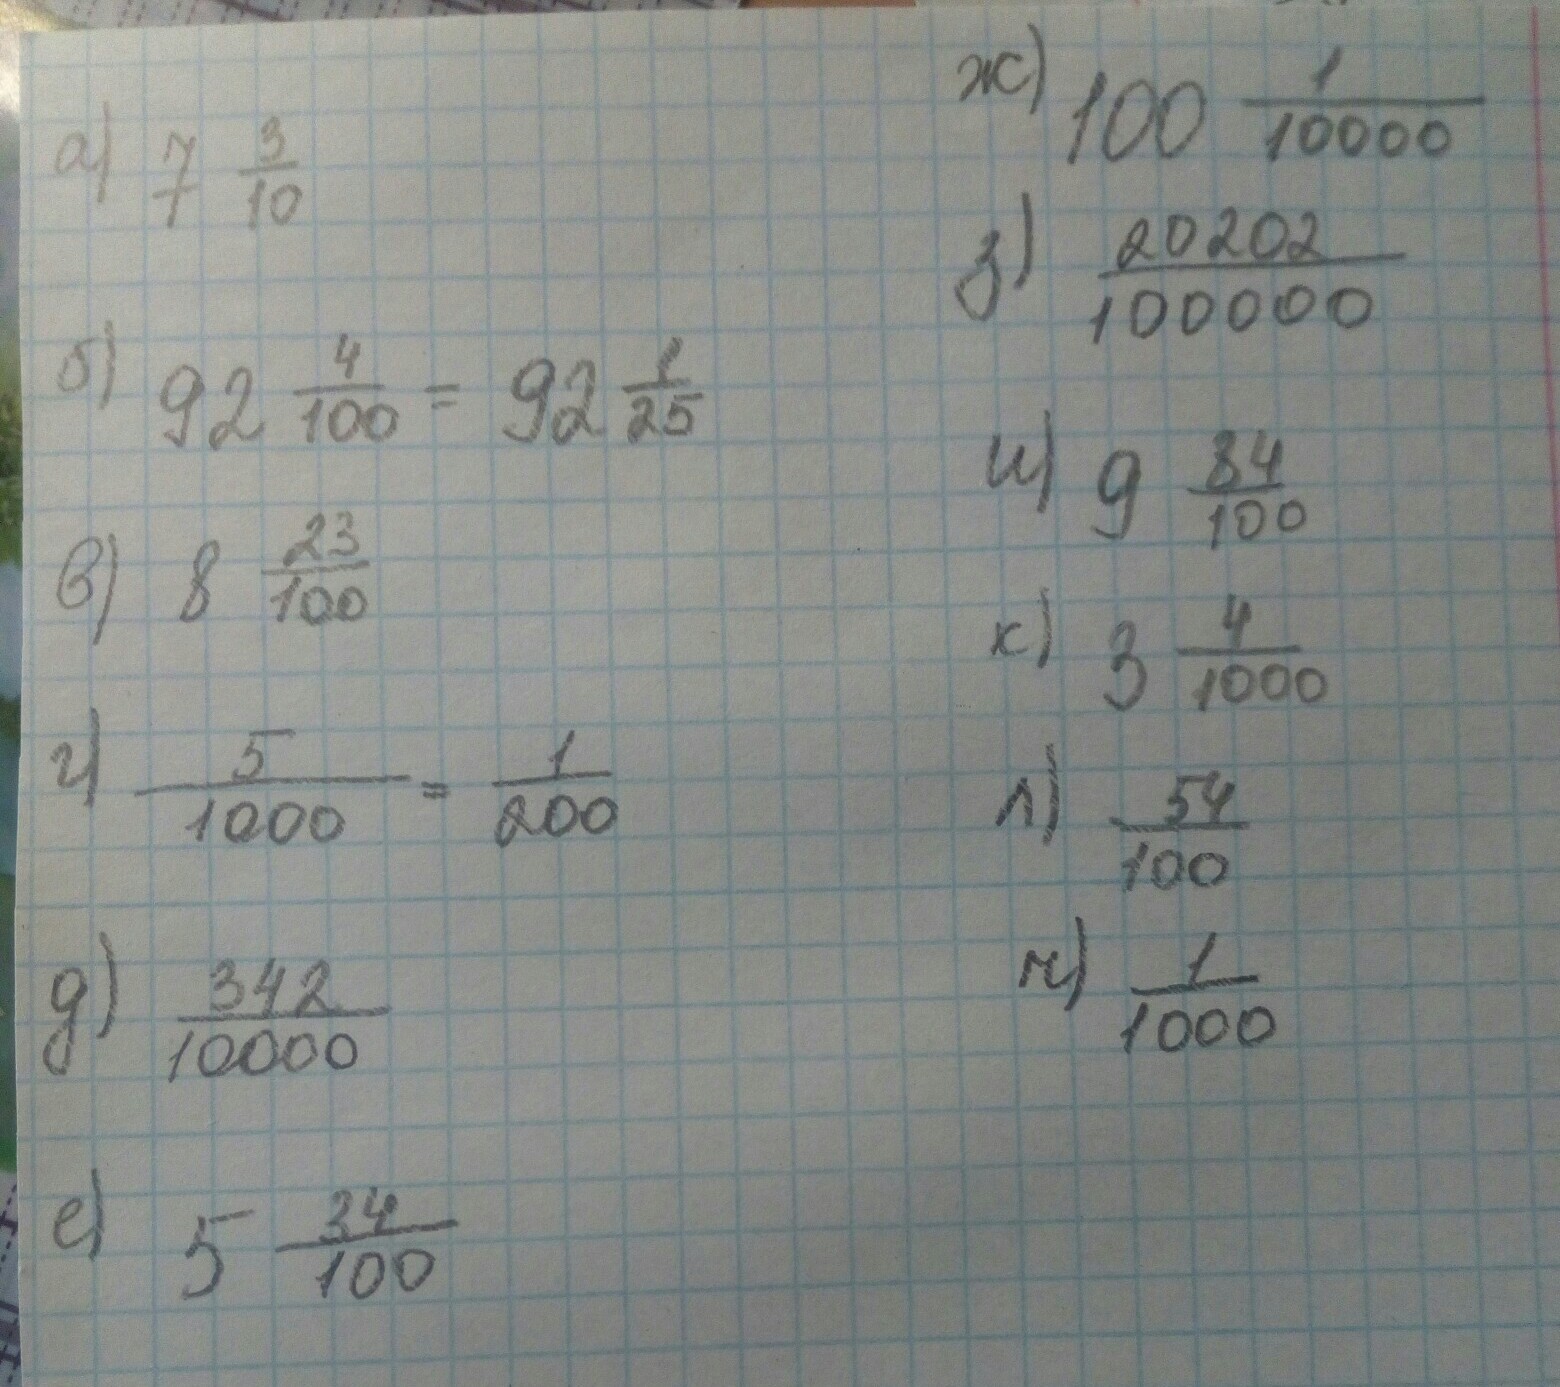 а) 7 3/10
б) 92 4/100 = 92 1/25
в) 8 23/100
г) 5/1000 = 1/200
д) 342/10000
е) 5 34/100
ж) 100 1/10000
з) 20202/100000
и) 9 34/100
к) 3 4/1000
л) 54/100
м) 1/1000